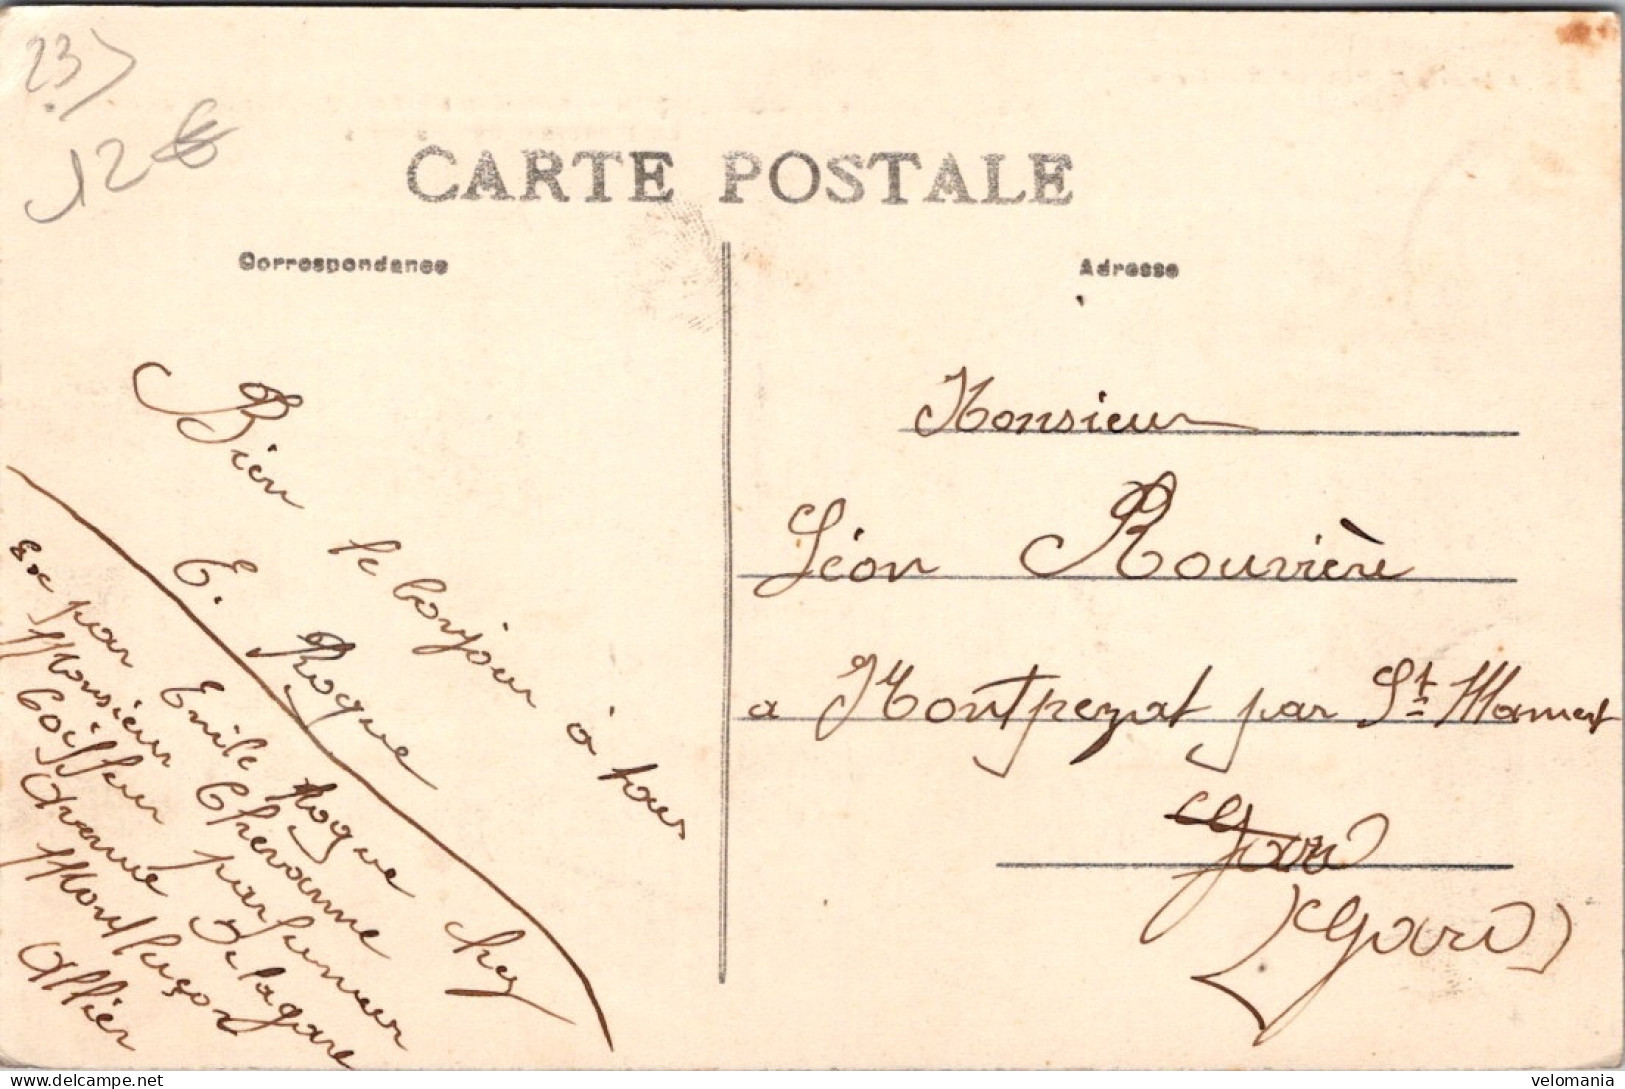 23)
12€
CARTE POSTALE
Correspondance
Adresse
Bien le bonjour à tous
E. Roque
Ex par Emile Roque chez
Monsieur Chevanne
Coiffeur parfumeur
Avenue de la gare
Montluçon
Allier
Monsieur
Léon Rouvière
a Montpezat par St Mamert
Gard
(Gard)
delcampe.net
velomania